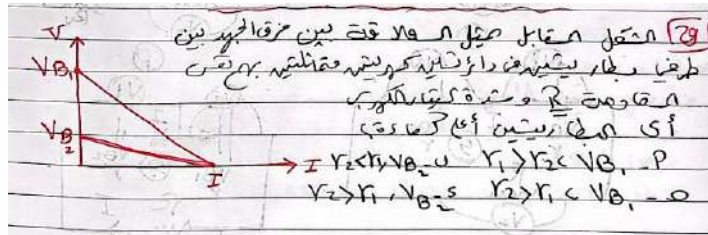 29 الشكل المقابل يمثل العلاقة بين فرق الجهد بين
طرفي بطاريتين في دائرتين كهربيتين متماثلتين بهم نفس
المقاومة R وشدة التيار الكهربي
أي البطاريتين أعلى كفاءة؟
P - VB₁ , r₁ > r₂ ب - VB₂ , r₂ < r₁
ج - VB₁ , r₂ > r₁ د - VB₂ , r₂ > r₁
V
VB₁
VB₂
I
I